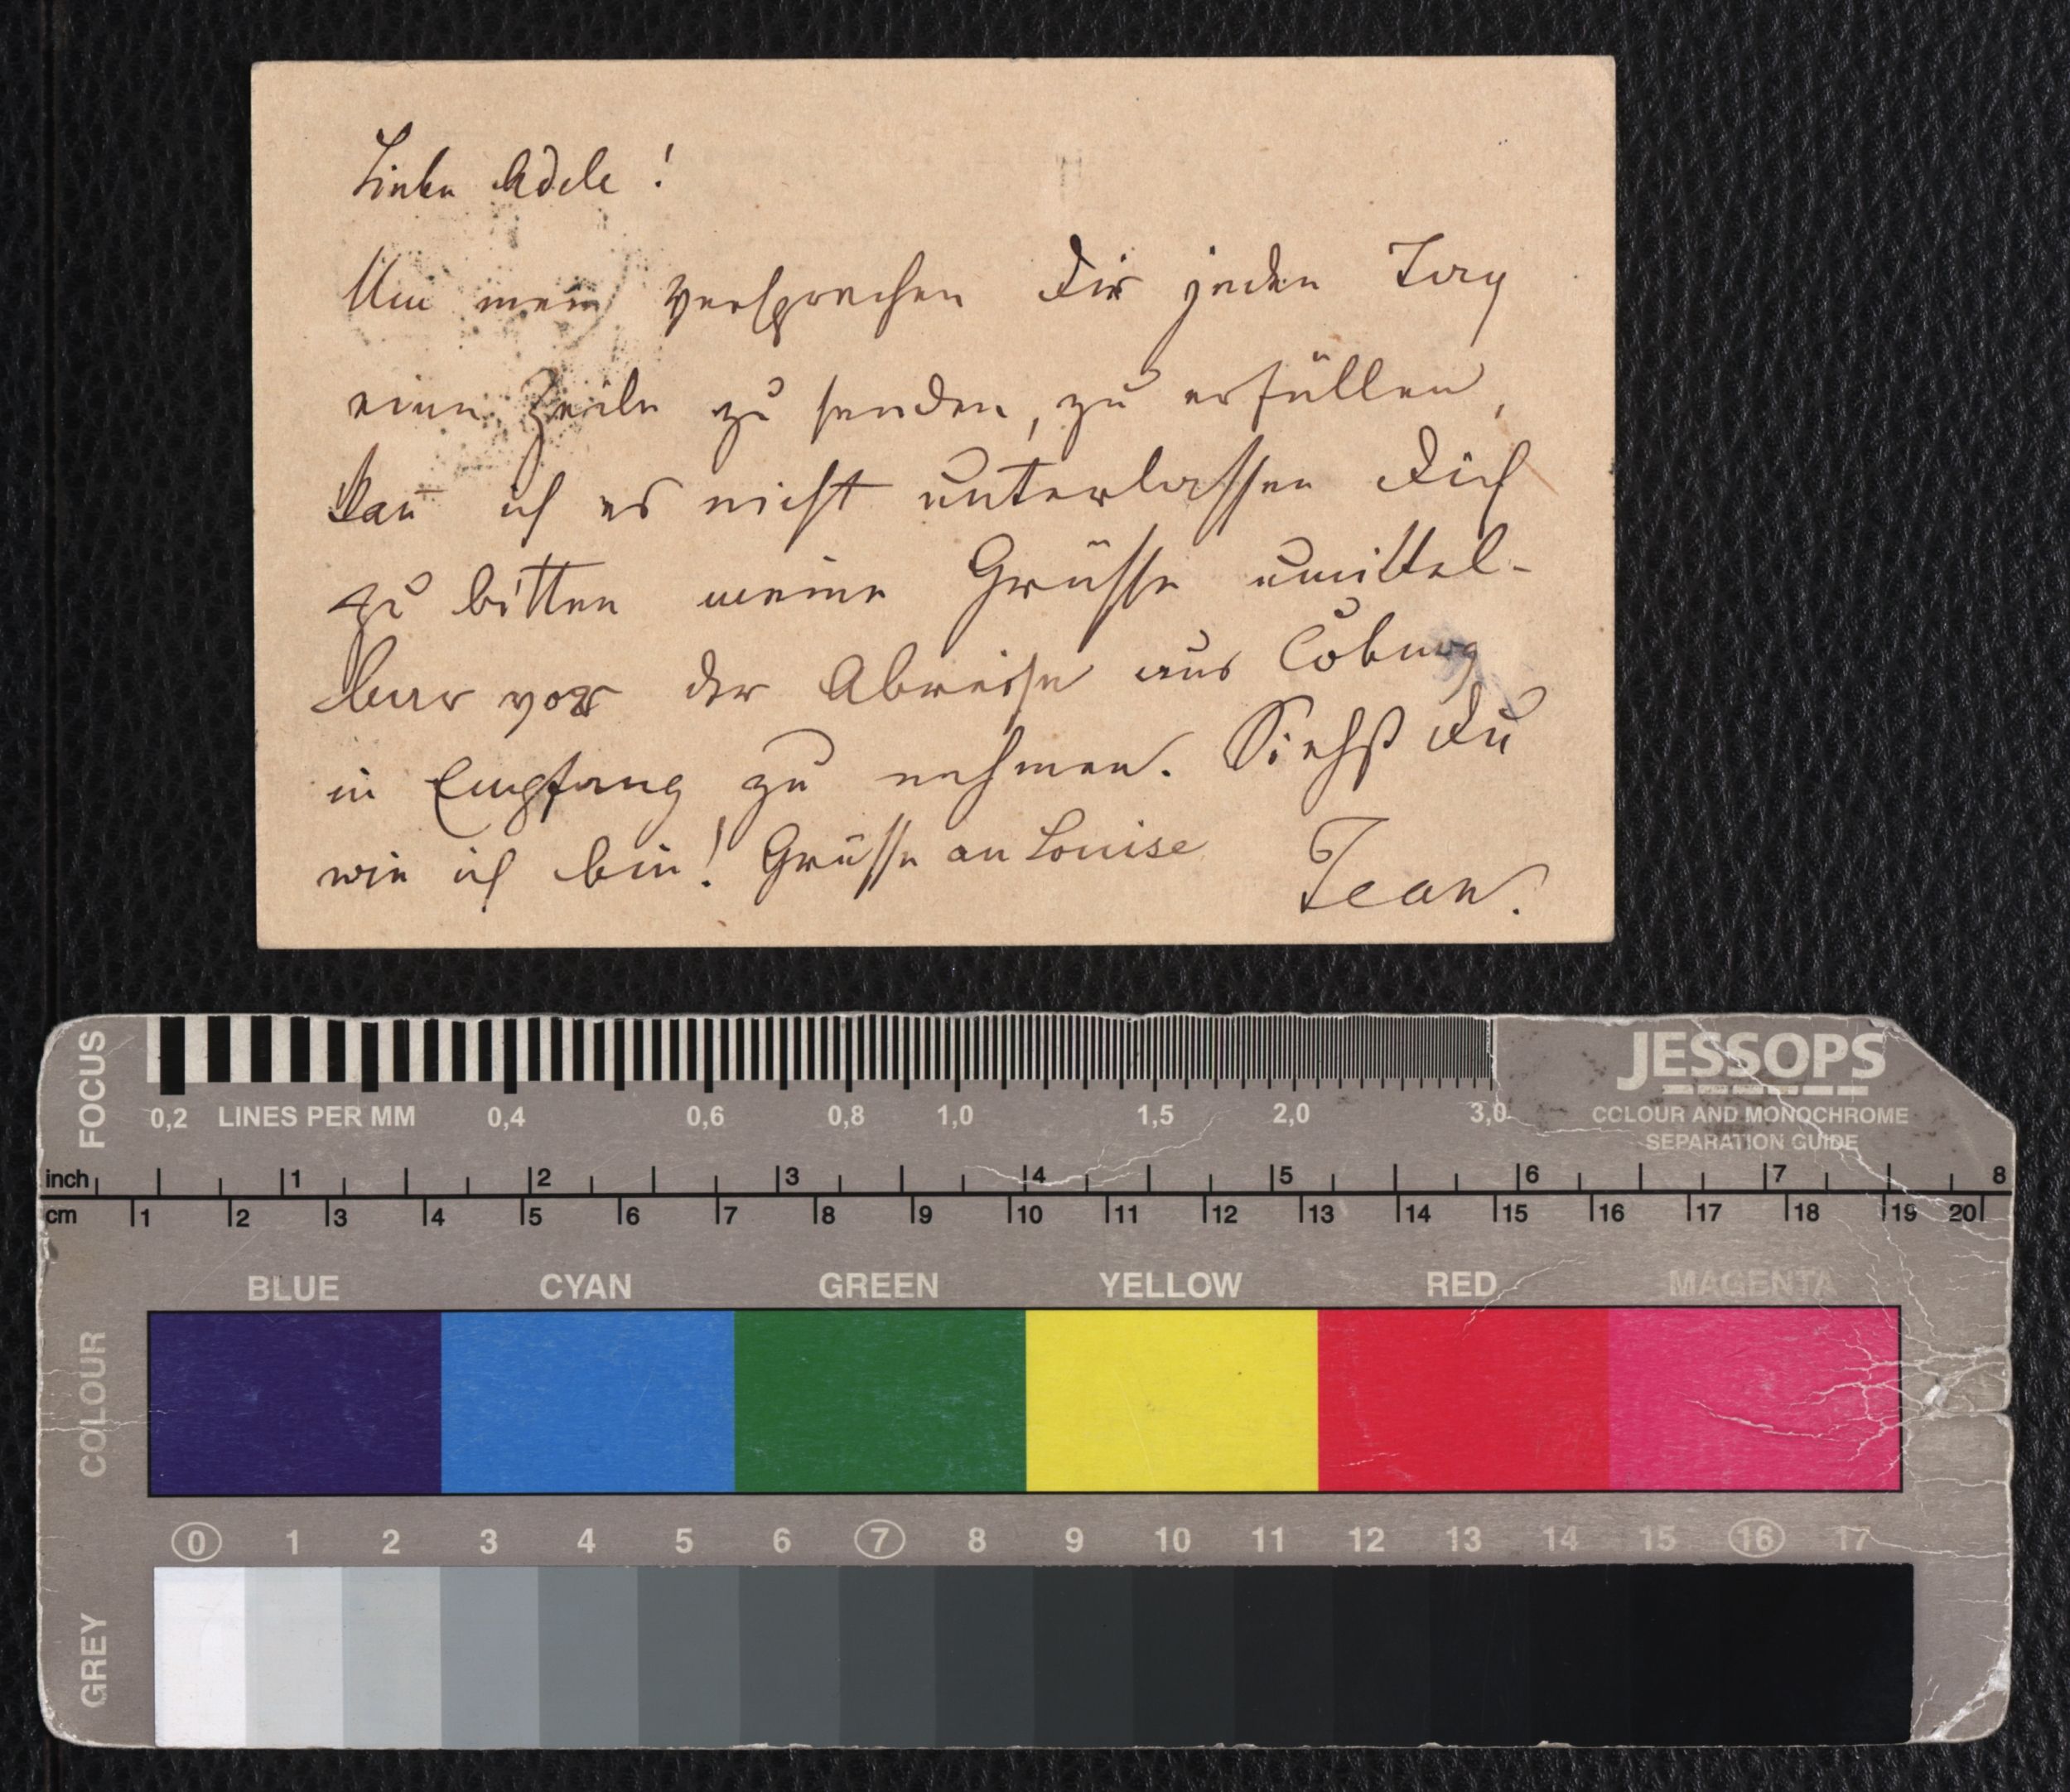 Liebe Adele!
Um mein Versprechen Dir jeden Tag
eine Zeile zu senden, zu erfüllen,
kan̄ ich es nicht unterlassen Dich
zu bitten meine Grüsse unmittel-
bar vor der Abreise aus Coburg
in Empfang zu nehmen. Siehst Du
wie ich bin! Grüsse an Louise
Jean.
FOCUS
0,2 LINES PER MM 0,4 0,6 0,8 1,0 1,5 2,0 3,0
JESSOPS
COLOUR AND MONOCHROME
SEPARATION GUIDE
inch 1 2 3 4 5 6 7 8
cm 1 2 3 4 5 6 7 8 9 10 11 12 13 14 15 16 17 18 19 20
COLOUR
BLUE CYAN GREEN YELLOW RED MAGENTA
0 1 2 3 4 5 6 7 8 9 10 11 12 13 14 15 16 17
GREY